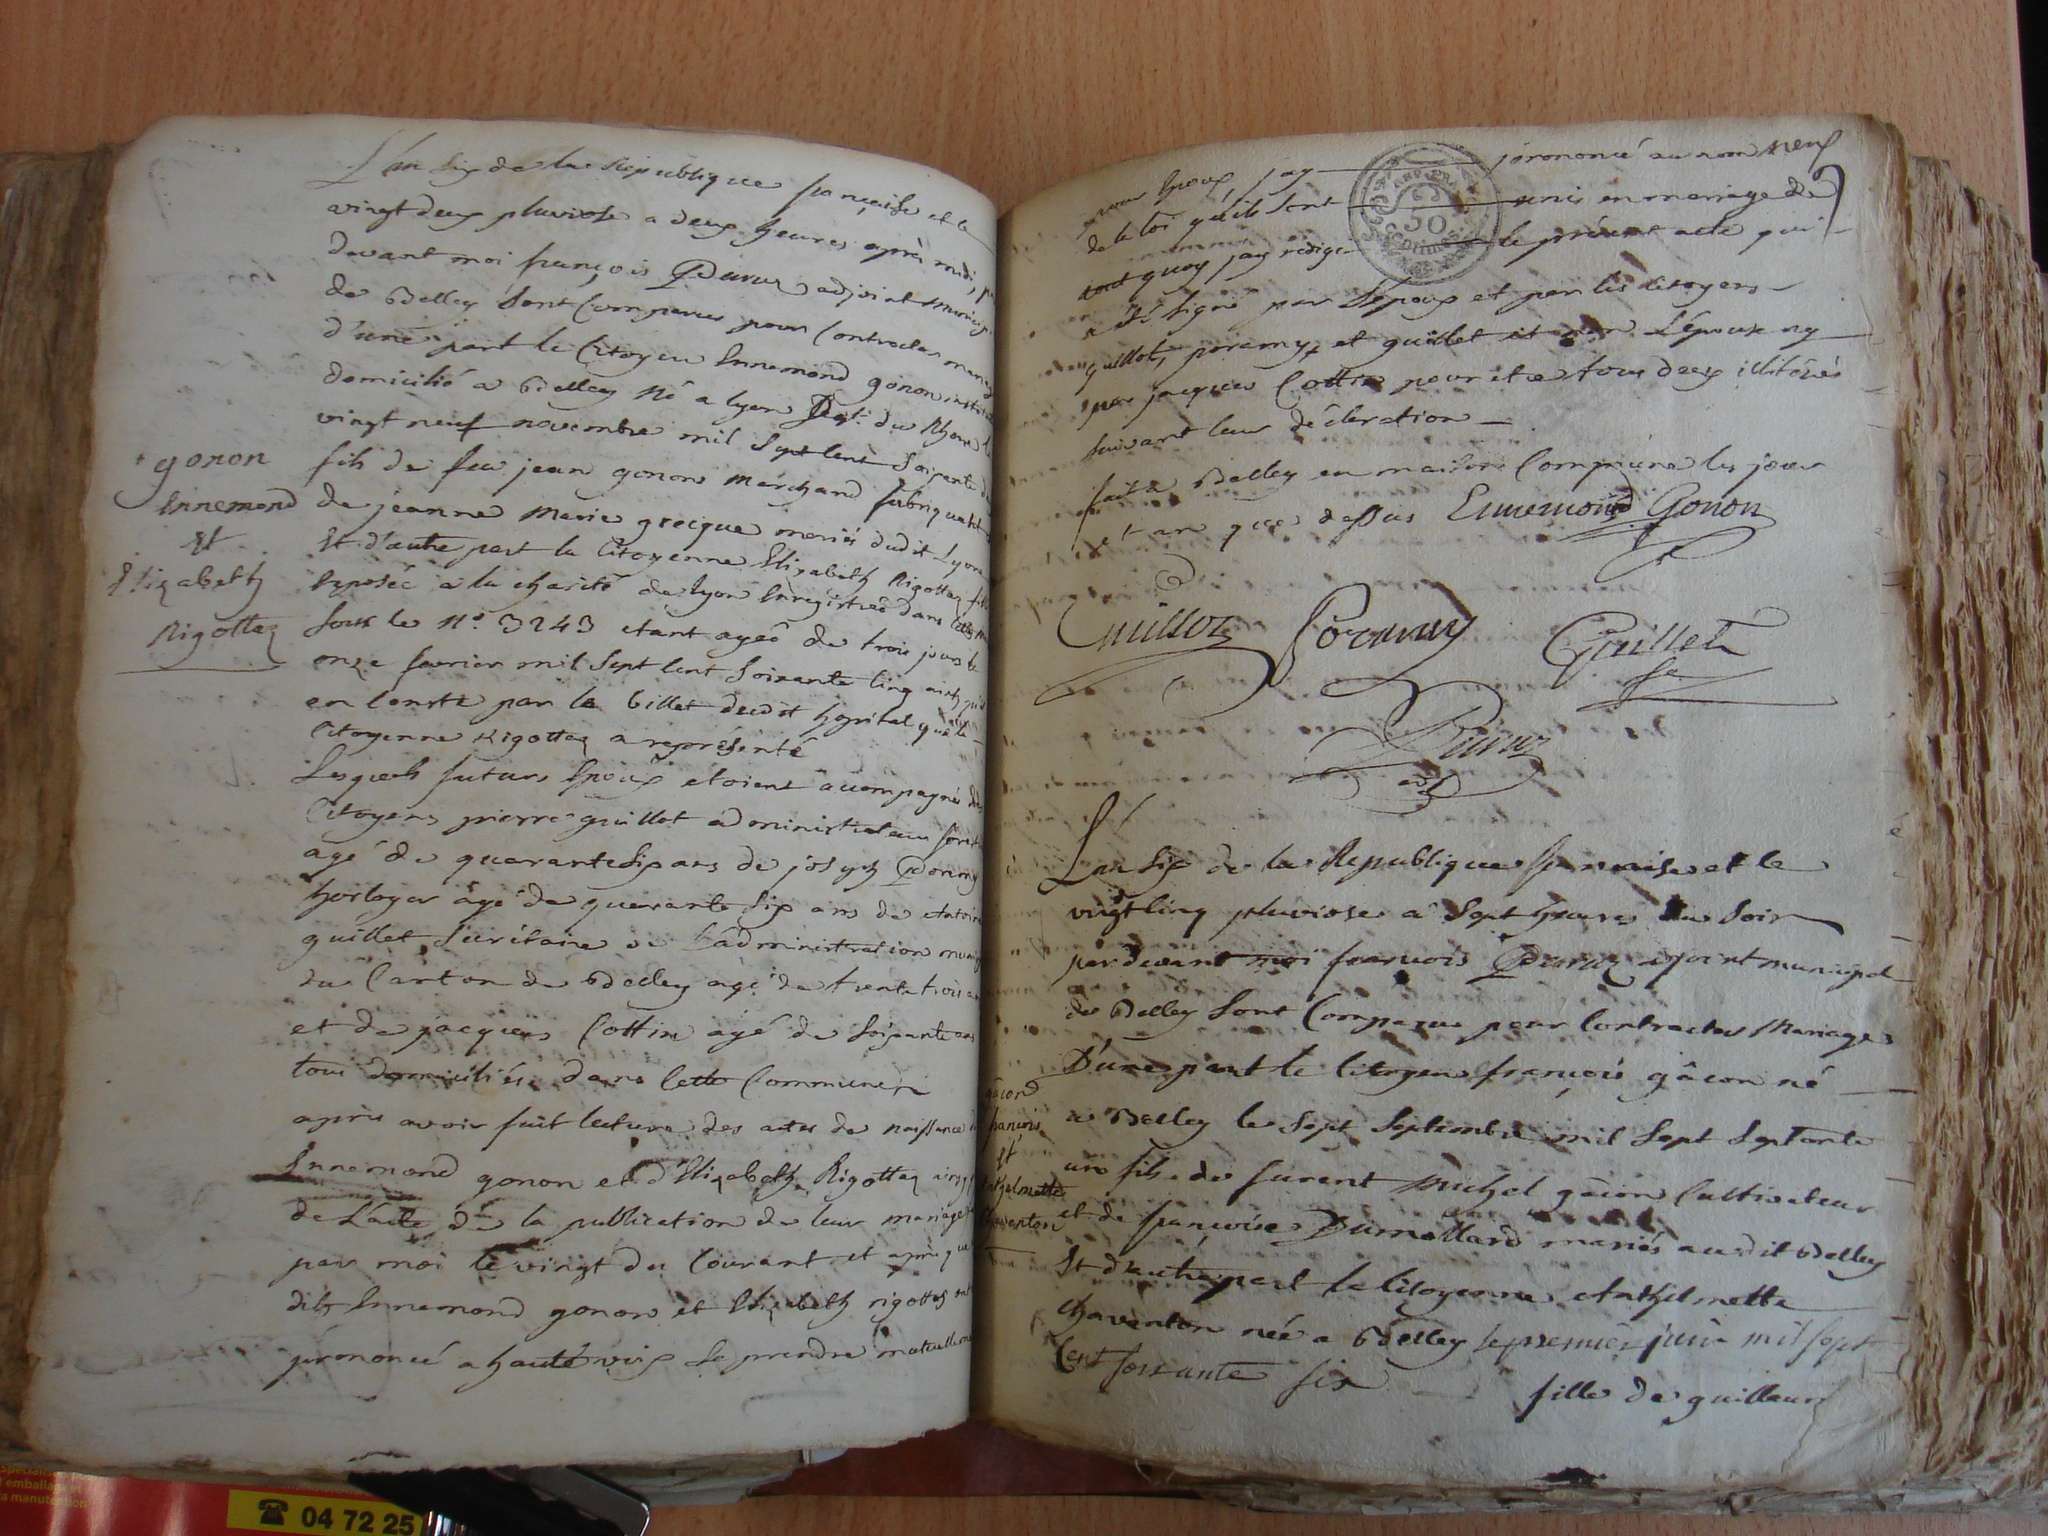 L'an six de la Republique francaise et le
vingt deux pluviose a deux heures après midi, par
devant moi françois Duruz adjoint municip
de Belley sont Comparus pour Contracter mariage
d'une part le Citoyen Ennemond gonon
domicilié a Belley Né a lyon Dept. du Rhone le
vingt neuf novembre mil Sept Cent Soixante
fils de feu jean gonon Marchand fabriquant
de jeanne Marie grecque mariés dudit Lyon
Et d'autre part la Citoyenne Elizabeth Rigottaz fille
Exposée a la charité de lyon Enregistrée dans
sous le N° 3243 etant agée de trois jours le
onze fevrier mil Sept Cent Soixante Cinq
en Conste par le billet dudit hopital que la
Citoyenne Rigottaz a representé
Lesquels futurs Epoux etoient accompagnés des
Citoyens pierre guillot administrateur
agé de quarante six ans de joseph
horloger âgé de quarante Six ans de Antoine
guillet Secrétaire de L'administration
du Canton de Belley agé de trente trois ans
et de jacques Cottin agé de Soixante ans
tous domiciliés dans Cette Commune
après avoir fait lecture des actes de naissance
Ennemond gonon et d'Elizabeth Rigottaz
de L'acte de la publication de leur mariage
par moi le vingt du Courant et après que
dits Ennemond gonon et Elizabeth rigottaz ont
prononcé a haute voix se prendre mutuellement
gonon
Ennemond
Et
Elizabeth
Rigottaz
pour Epoux, jay prononcé au nom
de la loi qu'ils sont unis en mariage de
tout quoy jay redigé le présent acte qui
a été signé par L'époux et par les citoyens
guillot, et guillet et non L'épouse ny
par jacques Cottin pour etre tous deux illiterés
suivant leur déclaration
fait a Belley en maison Commune les jour
et an que dessus Ennemond Gonon
Guillot Guillet
Duruz
adj
50
CENTIMES
L'an Six de la Republique francaise et le
vingt Cinq pluviose a Sept heures du Soir
pardevant moi francois Duruz adjoint municipal
de Belley Sont Comparus pour Contracter Mariage
D'une part le Citoyen françois gâcon né
a Belley le Sept Septembre mil Sept Septante
un fils de furent Michel gâcon Cultivateur
et de françoise Dumollard mariés audit Belley
Et d'autre part la Citoyenne Anthelmette
Chaventon née a Belley le premier juin mil sept
Cent soixante six fille de guillaume
gâcon
françois
Et
Anthelmette
Chaventon
l'emballage et
la manutention
☎ 04 72 25